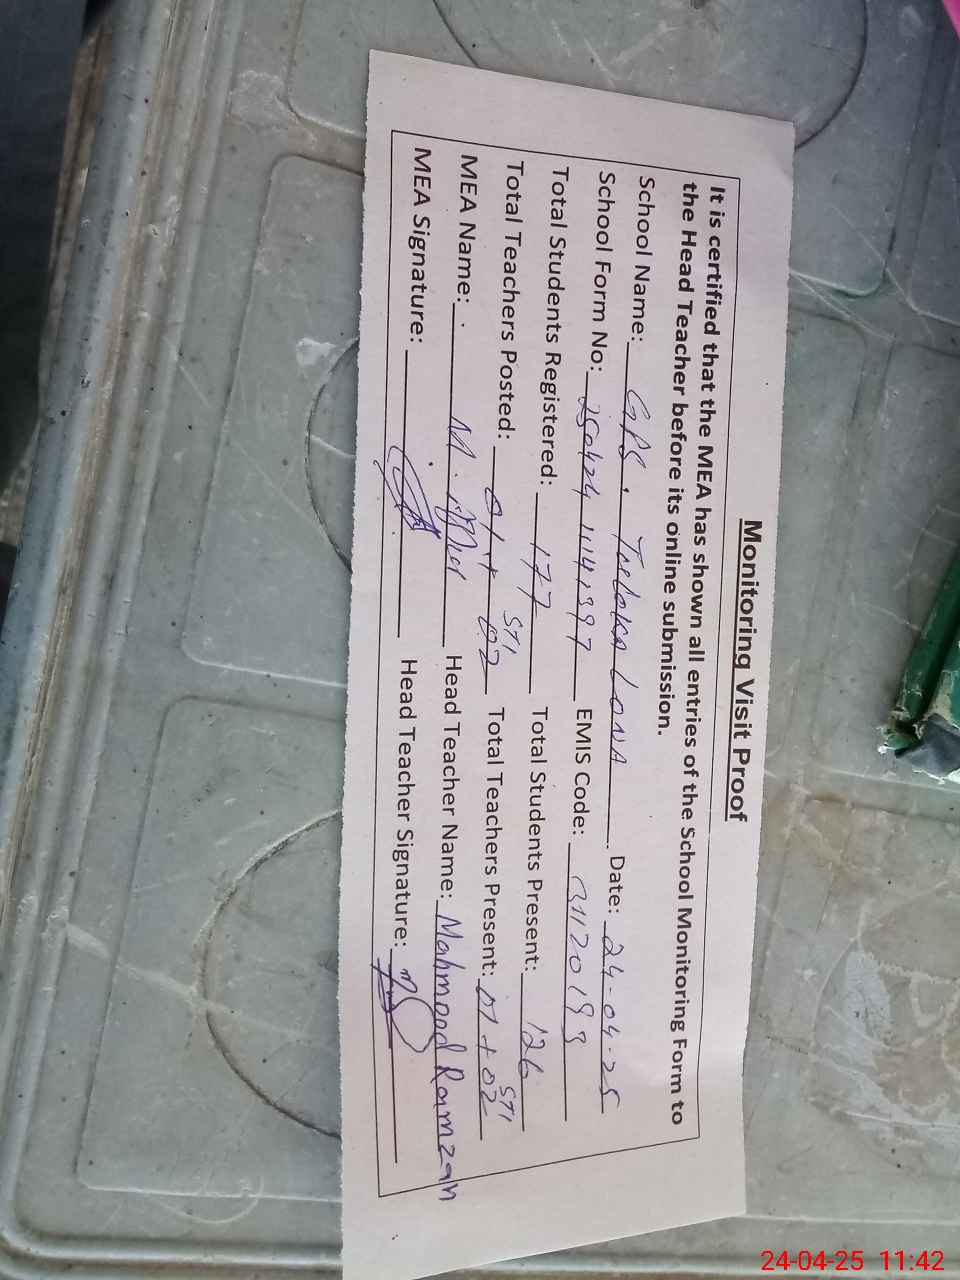 Monitoring Visit Proof
It is certified that the MEA has shown all entries of the School Monitoring Form to
the Head Teacher before its online submission.
School Name: GPS. LONA Date: 24-04-25
School Form No: EMIS Code:
Total Students Registered: 177 Total Students Present: 126
Total Teachers Posted: 01 + 02 STI Total Teachers Present: 01 + 02 STI
MEA Name: M. Head Teacher Name: Mahmood Ramzan
MEA Signature: Head Teacher Signature:
24-04-25 11:42